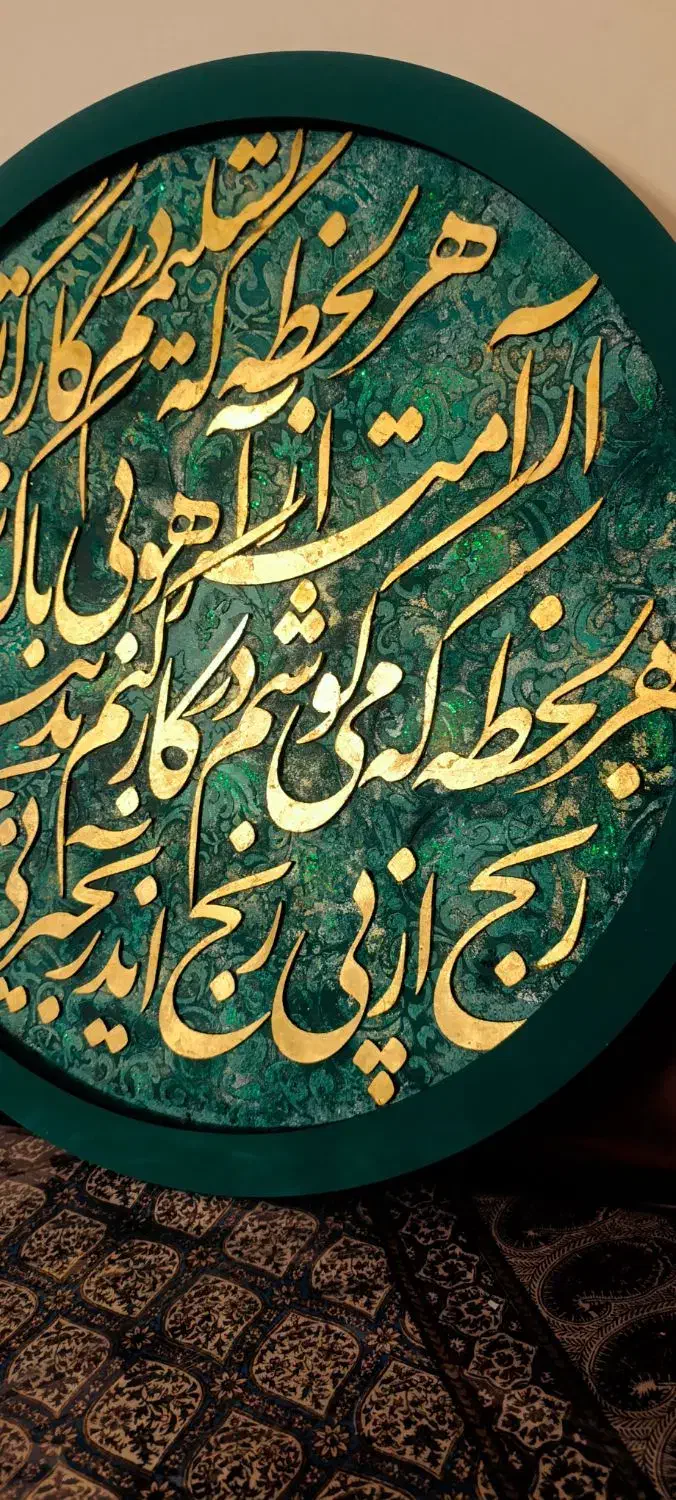 هر لحظه که تسلیمم در کارگه
آرامتر از آهو بی باک
هر لحظه که می کوشم در کار کنم تدبیـ
رنج از پی رنج آید زنجیر پی